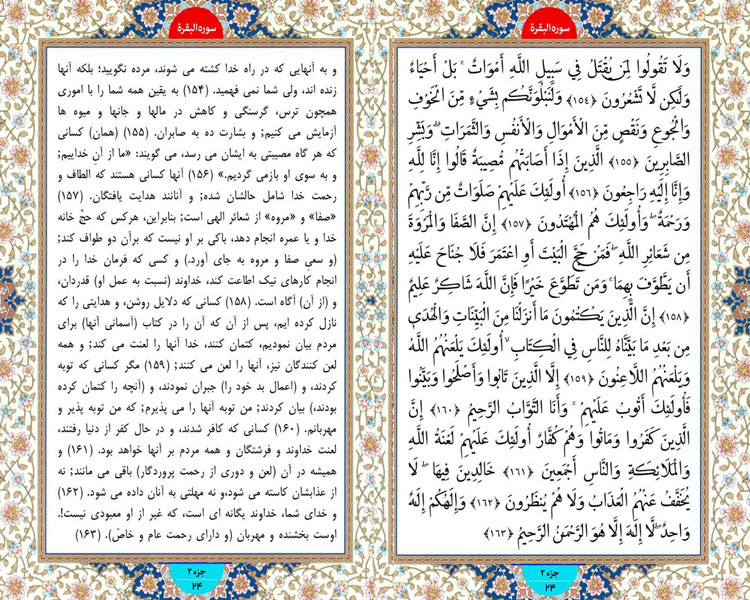 سوره البقرة
وَلَا تَقُولُوا لِمَن يُقْتَلُ فِي سَبِيلِ اللَّهِ أَمْوَاتٌ ۚ بَلْ أَحْيَاءٌ
وَلَٰكِن لَّا تَشْعُرُونَ ﴿۱۵۴﴾ وَلَنَبْلُوَنَّكُم بِشَيْءٍ مِّنَ الْخَوْفِ
وَالْجُوعِ وَنَقْصٍ مِّنَ الْأَمْوَالِ وَالْأَنفُسِ وَالثَّمَرَاتِ ۗ وَبَشِّرِ
الصَّابِرِينَ ﴿۱۵۵﴾ الَّذِينَ إِذَا أَصَابَتْهُم مُّصِيبَةٌ قَالُوا إِنَّا لِلَّهِ
وَإِنَّا إِلَيْهِ رَاجِعُونَ ﴿۱۵۶﴾ أُولَٰئِكَ عَلَيْهِمْ صَلَوَاتٌ مِّن رَّبِّهِمْ
وَرَحْمَةٌ ۖ وَأُولَٰئِكَ هُمُ الْمُهْتَدُونَ ﴿۱۵۷﴾ إِنَّ الصَّفَا وَالْمَرْوَةَ
مِن شَعَائِرِ اللَّهِ ۖ فَمَنْ حَجَّ الْبَيْتَ أَوِ اعْتَمَرَ فَلَا جُنَاحَ عَلَيْهِ
أَن يَطَّوَّفَ بِهِمَا ۚ وَمَن تَطَوَّعَ خَيْرًا فَإِنَّ اللَّهَ شَاكِرٌ عَلِيمٌ
﴿۱۵۸﴾ إِنَّ الَّذِينَ يَكْتُمُونَ مَا أَنزَلْنَا مِنَ الْبَيِّنَاتِ وَالْهُدَىٰ
مِن بَعْدِ مَا بَيَّنَّاهُ لِلنَّاسِ فِي الْكِتَابِ ۙ أُولَٰئِكَ يَلْعَنُهُمُ اللَّهُ
وَيَلْعَنُهُمُ اللَّاعِنُونَ ﴿۱۵۹﴾ إِلَّا الَّذِينَ تَابُوا وَأَصْلَحُوا وَبَيَّنُوا
فَأُولَٰئِكَ أَتُوبُ عَلَيْهِمْ ۚ وَأَنَا التَّوَّابُ الرَّحِيمُ ﴿۱۶۰﴾ إِنَّ
الَّذِينَ كَفَرُوا وَمَاتُوا وَهُمْ كُفَّارٌ أُولَٰئِكَ عَلَيْهِمْ لَعْنَةُ اللَّهِ
وَالْمَلَائِكَةِ وَالنَّاسِ أَجْمَعِينَ ﴿۱۶۱﴾ خَالِدِينَ فِيهَا ۖ لَا
يُخَفَّفُ عَنْهُمُ الْعَذَابُ وَلَا هُمْ يُنظَرُونَ ﴿۱۶۲﴾ وَإِلَٰهُكُمْ إِلَٰهٌ
وَاحِدٌ ۖ لَّا إِلَٰهَ إِلَّا هُوَ الرَّحْمَٰنُ الرَّحِيمُ ﴿۱۶۳﴾
جزء ۲
۲۴
سوره البقرة
و به آنهایی که در راه خدا کشته می شوند، مرده نگویید؛ بلکه آنها
زنده اند، ولی شما نمی فهمید. (۱۵۴) به یقین همه شما را با اموری
همچون ترس، گرسنگی و کاهش در مالها و جانها و میوه ها
آزمایش می کنیم; و بشارت ده به صابران. (۱۵۵) (همان) کسانی
که هر گاه مصیبتی به ایشان می رسد، می گویند: «ما از آنِ خداییم;
و به سوی او بازمی گردیم.» (۱۵۶) آنها کسانی هستند که الطاف و
رحمت خدا شامل حالشان شده; و آنانند هدایت یافتگان. (۱۵۷)
«صفا» و «مروه» از شعائر الهی است; بنابراین، هرکس که حجِّ خانه
خدا و یا عمره انجام دهد، باکی بر او نیست که برآن دو طواف کند;
(و سعیِ صفا و مروه به جای آورد.) و کسی که فرمان خدا را در
انجام کارهای نیک اطاعت کند، خداوند (نسبت به عمل او) قدردان،
و (از آن) آگاه است. (۱۵۸) کسانی که دلایل روشن، و هدایتی را که
نازل کرده ایم، پس از آن که آن را در کتاب (آسمانی آنها) برای
مردم بیان نمودیم، کتمان کنند، خدا آنها را لعنت می کند; و همه
لعن کنندگان نیز، آنها را لعن می کنند; (۱۵۹) مگر کسانی که توبه
کردند، و (اعمال بد خود را) جبران نمودند، و (آنچه را کتمان کرده
بودند،) بیان کردند; من توبه آنها را می پذیرم; که من توبه پذیر و
مهربانم. (۱۶۰) کسانی که کافر شدند، و در حال کفر از دنیا رفتند،
لعنت خداوند و فرشتگان و همه مردم بر آنها خواهد بود. (۱۶۱) و
همیشه در آن (لعن و دوری از رحمت پروردگار) باقی می مانند; نه
از عذابشان کاسته می شود، و نه مهلتی به آنان داده می شود. (۱۶۲)
و خدای شما، خداوند یگانه ای است، که غیر از او معبودی نیست!.
اوست بخشنده و مهربان (و دارای رحمت عام و خاصّ). (۱۶۳)
جزء ۲
۲۴